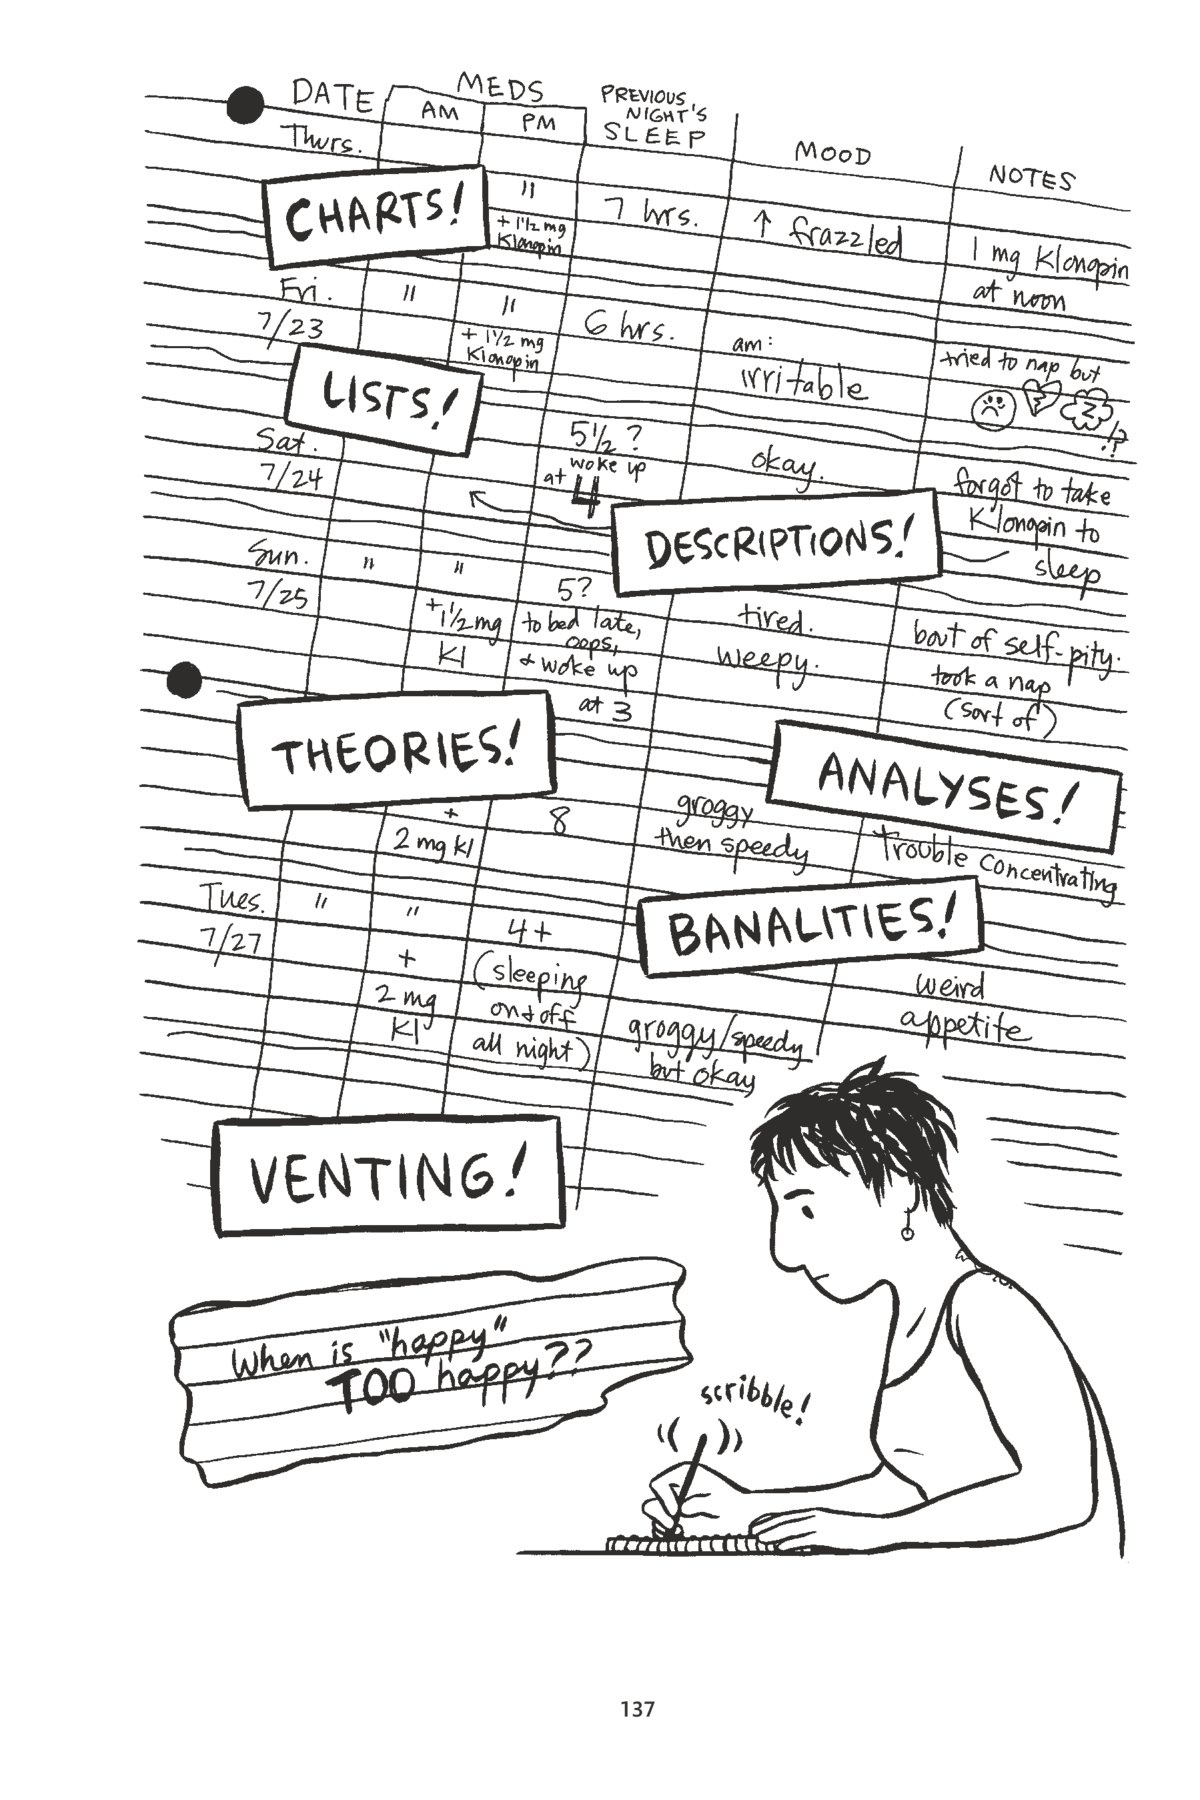 DATE
MEDS
AM
PM
PREVIOUS
NIGHT'S
SLEEP
MOOD
NOTES
Thurs.
CHARTS!
"
+ 1 1/2 mg
Klonopin
7 hrs.
↑ frazzled
1 mg Klonopin
at noon
Fri.
7/23
"
"
+ 1 1/2 mg
Klonopin
6 hrs.
am:
irritable
tried to nap but
z
!?
LISTS!
Sat.
7/24
5 1/2 ?
woke up
at 4
okay.
forgot to take
Klonopin to
sleep
DESCRIPTIONS!
Sun.
7/25
"
"
+1 1/2 mg
Kl
5?
to bed late,
oops,
& woke up
at 3
tired.
weepy.
bout of self-pity.
took a nap
(sort of)
THEORIES!
ANALYSES!
+
2 mg Kl
8
groggy
then speedy
trouble concentrating
BANALITIES!
Tues.
7/27
"
"
+
2 mg
Kl
4+
(sleeping
on & off
all night)
groggy/speedy
but okay
weird
appetite
VENTING!
When is "happy"
TOO happy??
scribble!
137